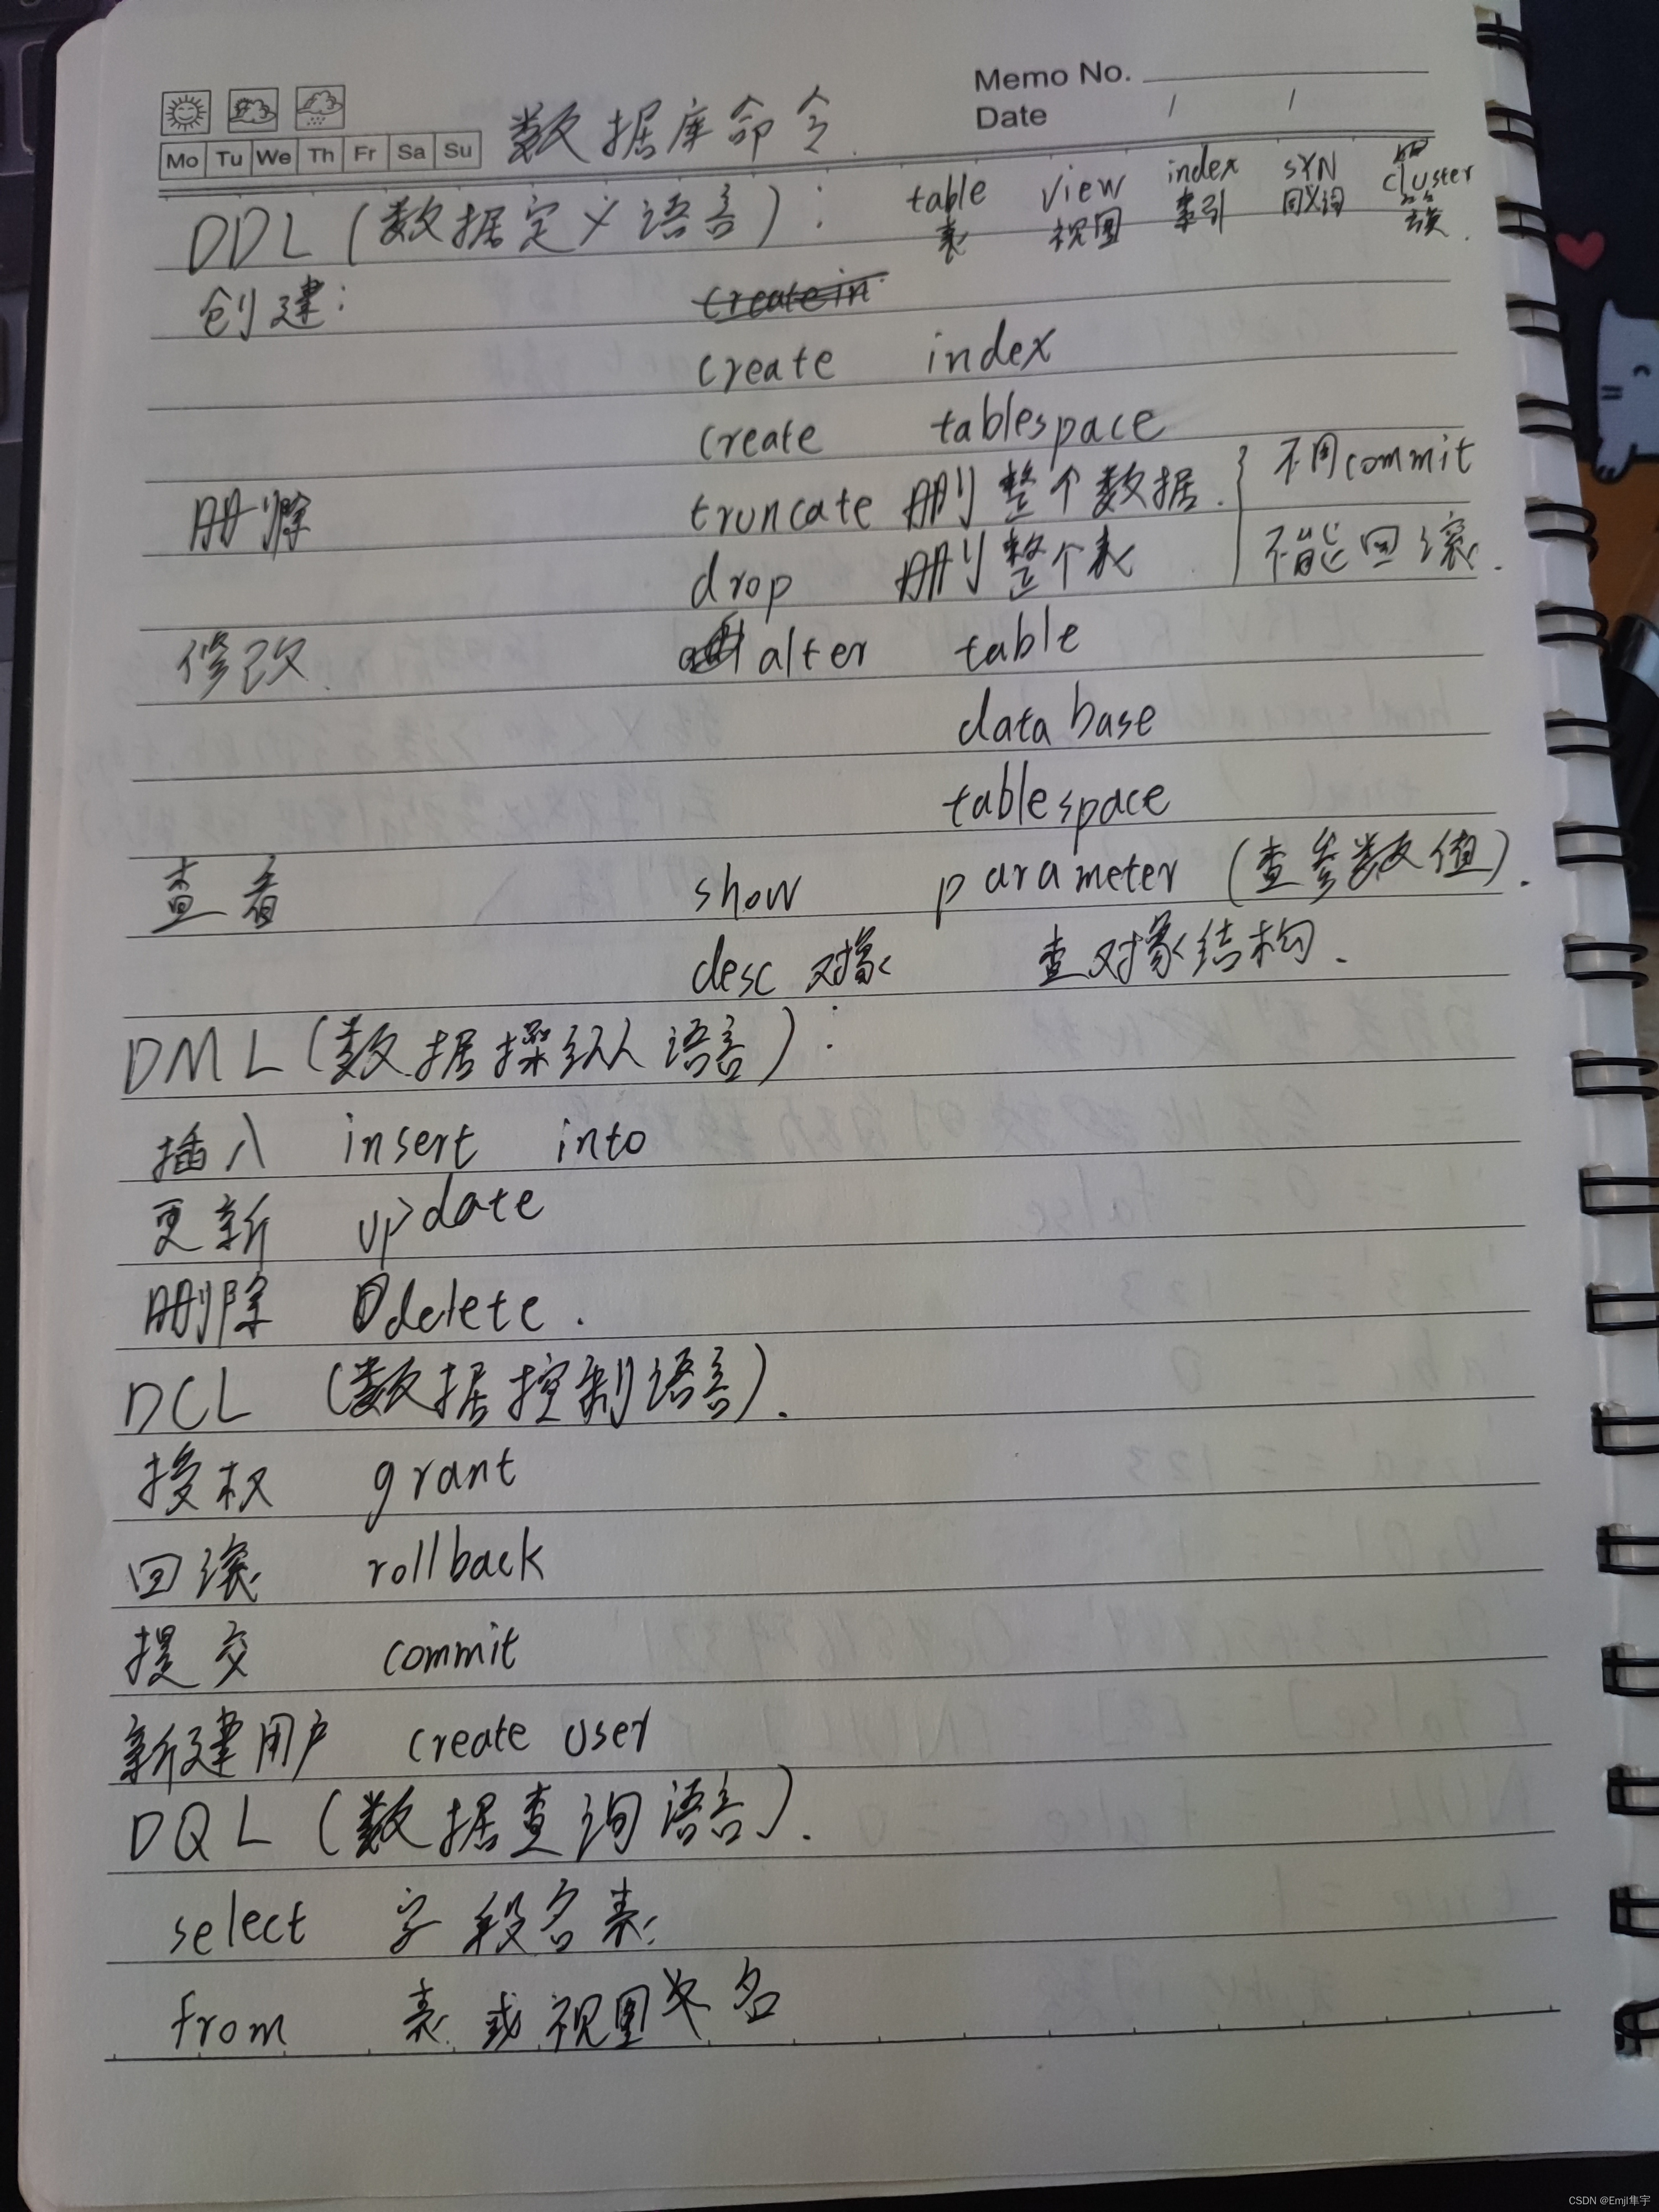 Memo No.
Date / /
Mo Tu We Th Fr Sa Su
数据库命令.
DDL (数据定义语言): table view index SYN cluster
表 视图 索引 同义词 簇.
创建:
create index
create tablespace
删除 truncate 删整个数据. } 不用commit
drop 删整个表 不能回滚.
修改. alter table
database
tablespace
查看 show parameter (查参数值).
desc 对象 查对象结构.
DML (数据操纵语言):
插入 insert into
更新 update
删除 delete.
DCL (数据控制语言).
授权 grant
回滚 rollback
提交 commit
新建用户 create user
DQL (数据查询语言).
select 字段名表
from 表或视图名
CSDN @Emjl隼宇